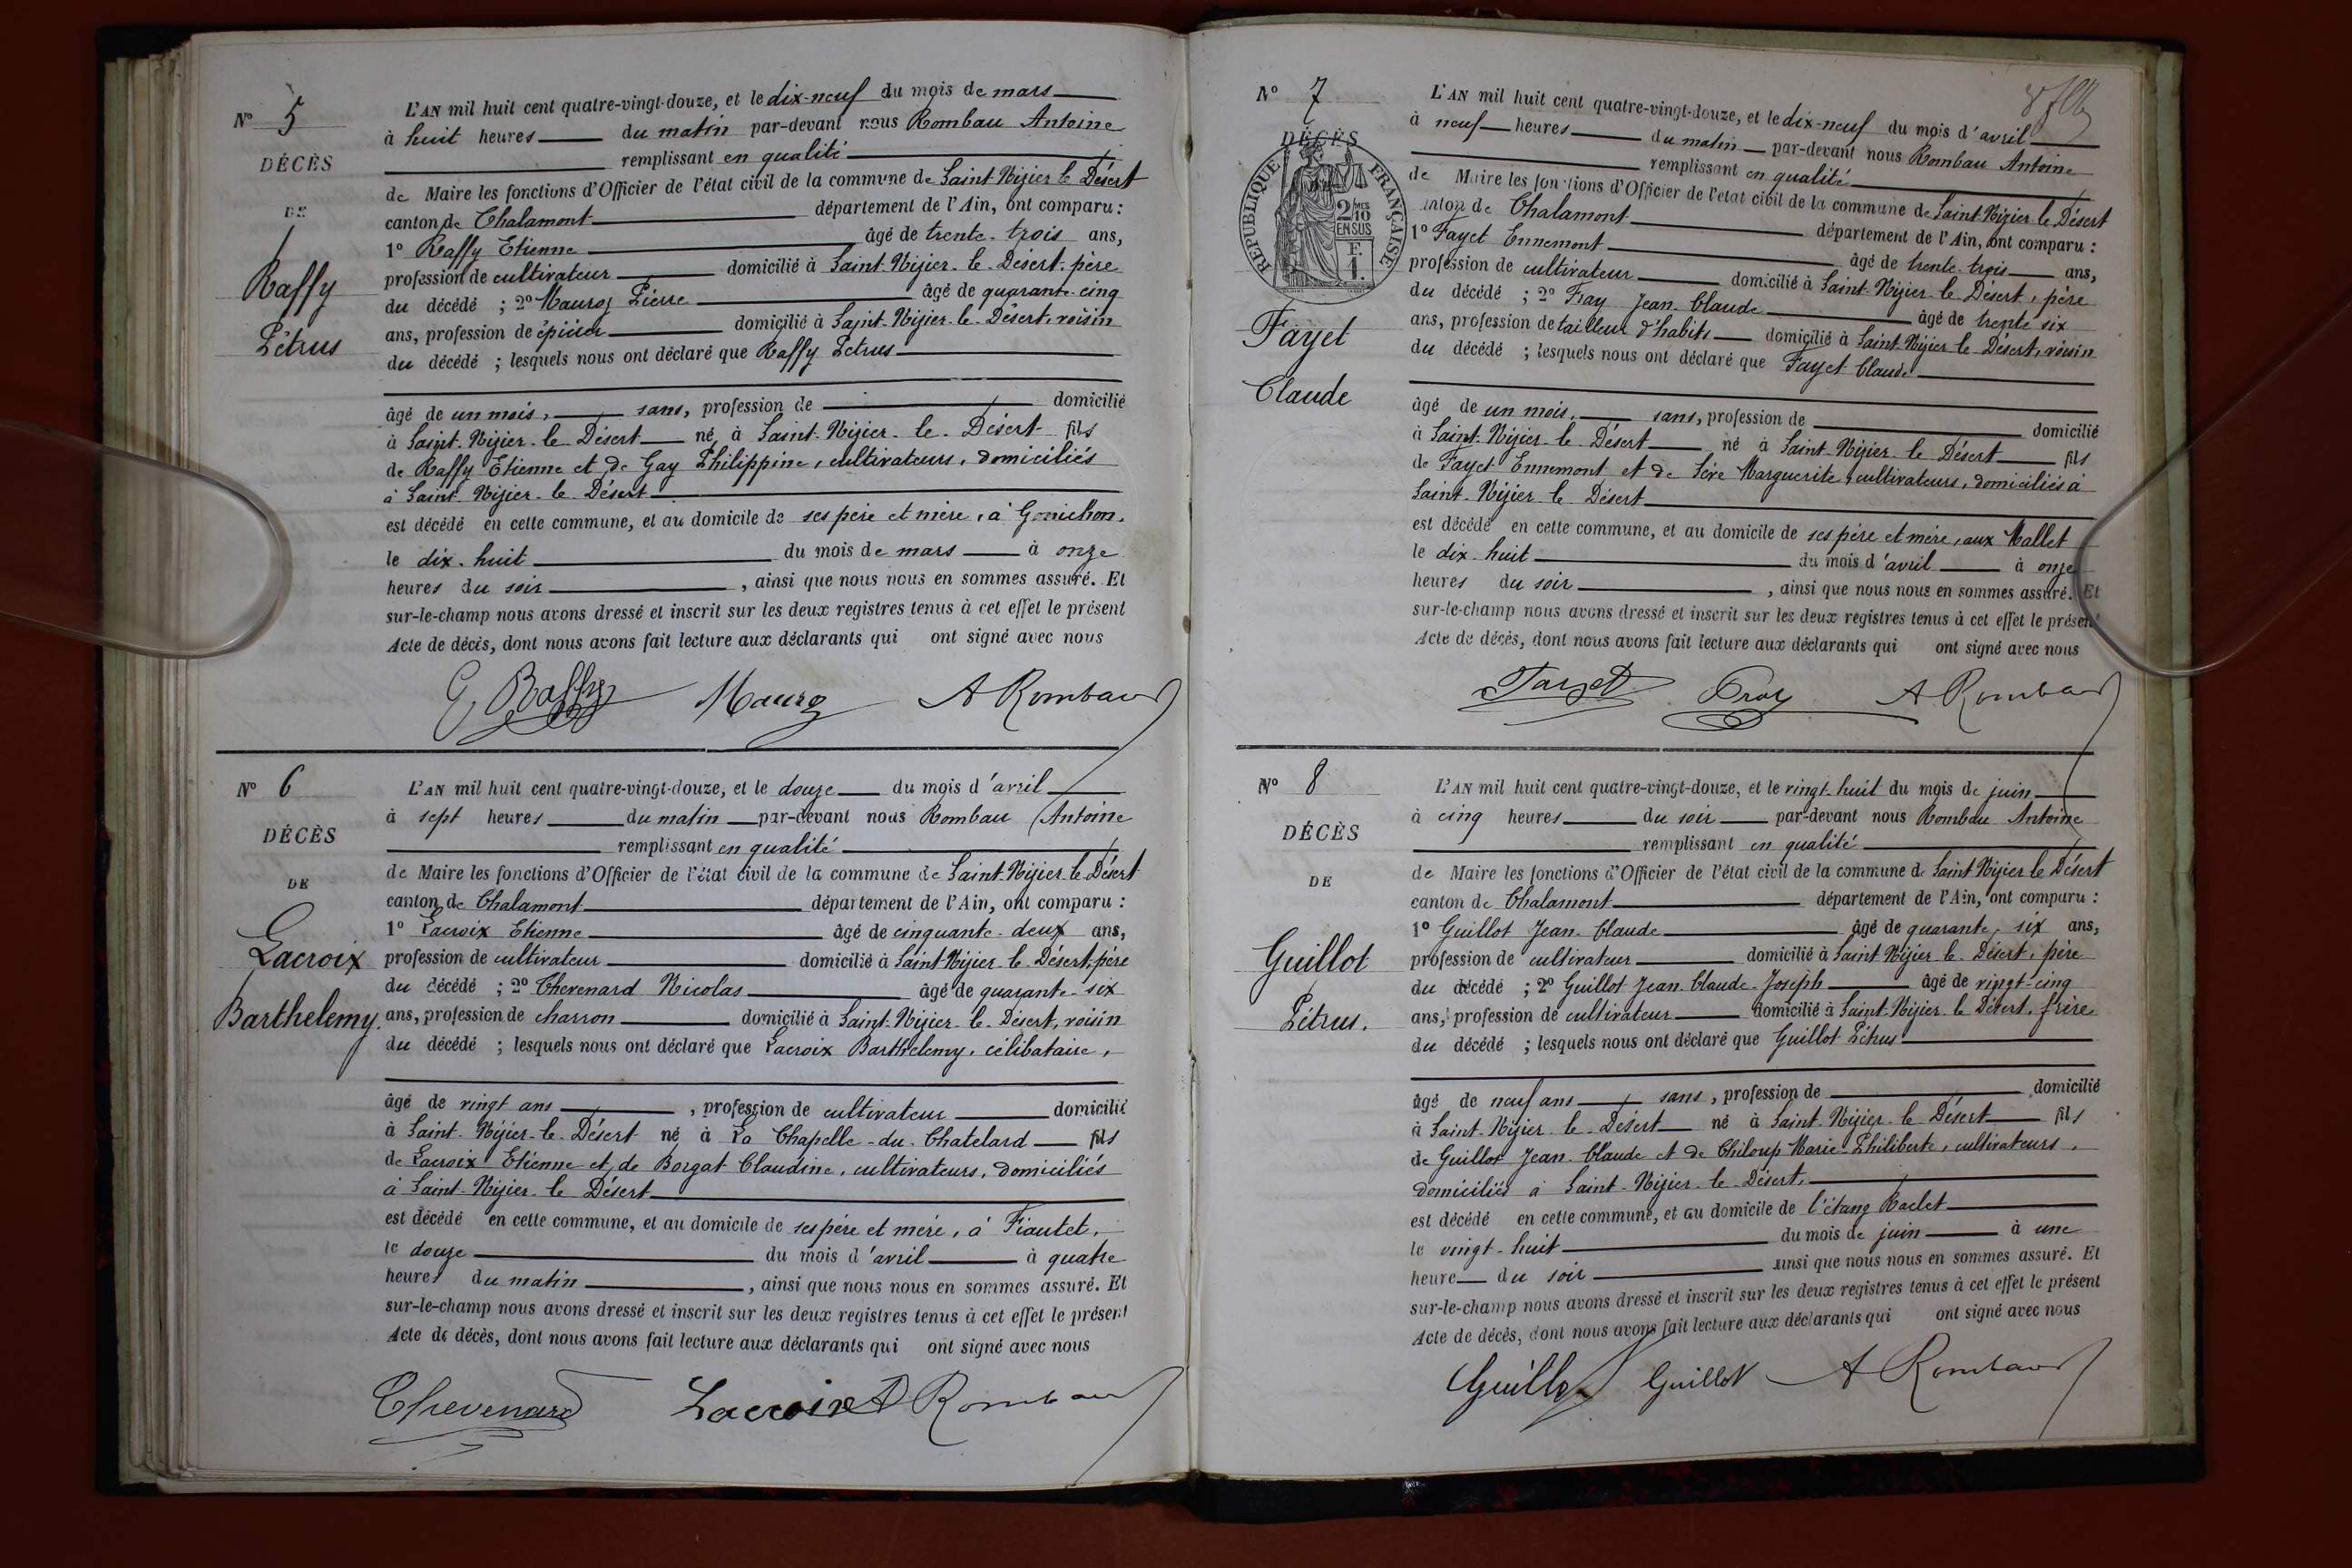 N° 5
DÉCÈS
DE
Raffy
Pétrus
L'AN mil huit cent quatre-vingt-douze, et le dix-neuf du mois de mars
à huit heures du matin par-devant nous Rombau Antoine
remplissant en qualité
de Maire les fonctions d'Officier de l'état civil de la commune de Saint-Nizier-le-Désert
canton de Chalamont département de l'Ain, ont comparu :
1° Raffy Etienne âgé de trente-trois ans,
profession de cultivateur domicilié à Saint-Nizier-le-Désert, père
du décédé ; 2° Pierre âgé de quarante-cinq
ans, profession de épicier domicilié à Saint-Nizier-le-Désert, voisin
du décédé ; lesquels nous ont déclaré que Raffy Pétrus
âgé de un mois, sans, profession de domicilié
à Saint-Nizier-le-Désert né à Saint-Nizier-le-Désert fils
de Raffy Etienne et de Gay Philippine, cultivateurs, domiciliés
à Saint-Nizier-le-Désert
est décédé en cette commune, et au domicile de ses père et mère, à
le dix-huit du mois de mars à onze
heures du soir , ainsi que nous nous en sommes assuré. Et
sur-le-champ nous avons dressé et inscrit sur les deux registres tenus à cet effet le présent
Acte de décès, dont nous avons fait lecture aux déclarants qui ont signé avec nous
E Raffy A Rombau
N° 6
DÉCÈS
DE
Lacroix
Barthelemy.
L'AN mil huit cent quatre-vingt-douze, et le douze du mois d'avril
à sept heures du matin par-devant nous Rombau Antoine
remplissant en qualité
de Maire les fonctions d'Officier de l'état civil de la commune de Saint-Nizier-le-Désert
canton de Chalamont département de l'Ain, ont comparu :
1° Lacroix Etienne âgé de cinquante-deux ans,
profession de cultivateur domicilié à Saint-Nizier-le-Désert, père
du décédé ; 2° Chevenard Nicolas âgé de quarante-six
ans, profession de charron domicilié à Saint-Nizier-le-Désert, voisin
du décédé ; lesquels nous ont déclaré que Lacroix Barthelemy, célibataire,
âgé de vingt ans , profession de cultivateur domicilié
à Saint-Nizier-le-Désert né à La Chapelle-du-Chatelard fils
de Lacroix Etienne et de Borgat Claudine, cultivateurs, domiciliés
à Saint-Nizier-le-Désert
est décédé en cette commune, et au domicile de ses père et mère, à Fiautet,
le douze du mois d'avril à quatre
heures du matin , ainsi que nous nous en sommes assuré. Et
sur-le-champ nous avons dressé et inscrit sur les deux registres tenus à cet effet le présent
Acte de décès, dont nous avons fait lecture aux déclarants qui ont signé avec nous
Chevenard Lacroix A Rombau
N° 7
DÉCÈS
RÉPUBLIQUE FRANÇAISE
2/10
MES
EN SUS
F.
1.
Fayet
Claude
L'AN mil huit cent quatre-vingt-douze, et le dix-neuf du mois d'avril
à neuf heures du matin par-devant nous Rombau Antoine
remplissant en qualité
de Maire les fonctions d'Officier de l'état civil de la commune de Saint-Nizier-le-Désert
canton de Chalamont département de l'Ain, ont comparu :
1° Fayet Ennemont âgé de trente-trois ans,
profession de cultivateur domicilié à Saint-Nizier-le-Désert, père
du décédé ; 2° Fray Jean-Claude âgé de trente six
ans, profession de tailleur d'habits domicilié à Saint-Nizier-le-Désert, voisin
du décédé ; lesquels nous ont déclaré que Fayet Claude
âgé de un mois, sans, profession de domicilié
à Saint-Nizier-le-Désert né à Saint-Nizier-le-Désert fils
de Fayet Ennemont et de Sève Marguerite, cultivateurs, domiciliés à
Saint-Nizier-le-Désert
est décédé en cette commune, et au domicile de ses père et mère, aux Mallet
le dix-huit du mois d'avril à onze
heures du soir , ainsi que nous nous en sommes assuré. Et
sur-le-champ nous avons dressé et inscrit sur les deux registres tenus à cet effet le présent
Acte de décès, dont nous avons fait lecture aux déclarants qui ont signé avec nous
Fayet Fray A Rombau
N° 8
DÉCÈS
DE
Guillot
Pétrus.
L'AN mil huit cent quatre-vingt-douze, et le vingt-huit du mois de juin
à cinq heures du soir par-devant nous Rombau Antoine
remplissant en qualité
de Maire les fonctions d'Officier de l'état civil de la commune de Saint-Nizier-le-Désert
canton de Chalamont département de l'Ain, ont comparu :
1° Guillot Jean-Claude âgé de quarante-six ans,
profession de cultivateur domicilié à Saint-Nizier-le-Désert, père
du décédé ; 2° Guillot Jean-Claude-Joseph âgé de vingt-cinq
ans, profession de cultivateur domicilié à Saint-Nizier-le-Désert, frère
du décédé ; lesquels nous ont déclaré que Guillot Pétrus
âgé de neuf ans sans, profession de domicilié
à Saint-Nizier-le-Désert né à Saint-Nizier-le-Désert fils
de Guillot Jean-Claude et de Chiloup Marie-Philiberte, cultivateurs,
domiciliés à Saint-Nizier-le-Désert,
est décédé en cette commune, et au domicile de l'étang Raclet
le vingt-huit du mois de juin à une
heure du soir ainsi que nous nous en sommes assuré. Et
sur-le-champ nous avons dressé et inscrit sur les deux registres tenus à cet effet le présent
Acte de décès, dont nous avons fait lecture aux déclarants qui ont signé avec nous
Guillot Guillot A Rombau